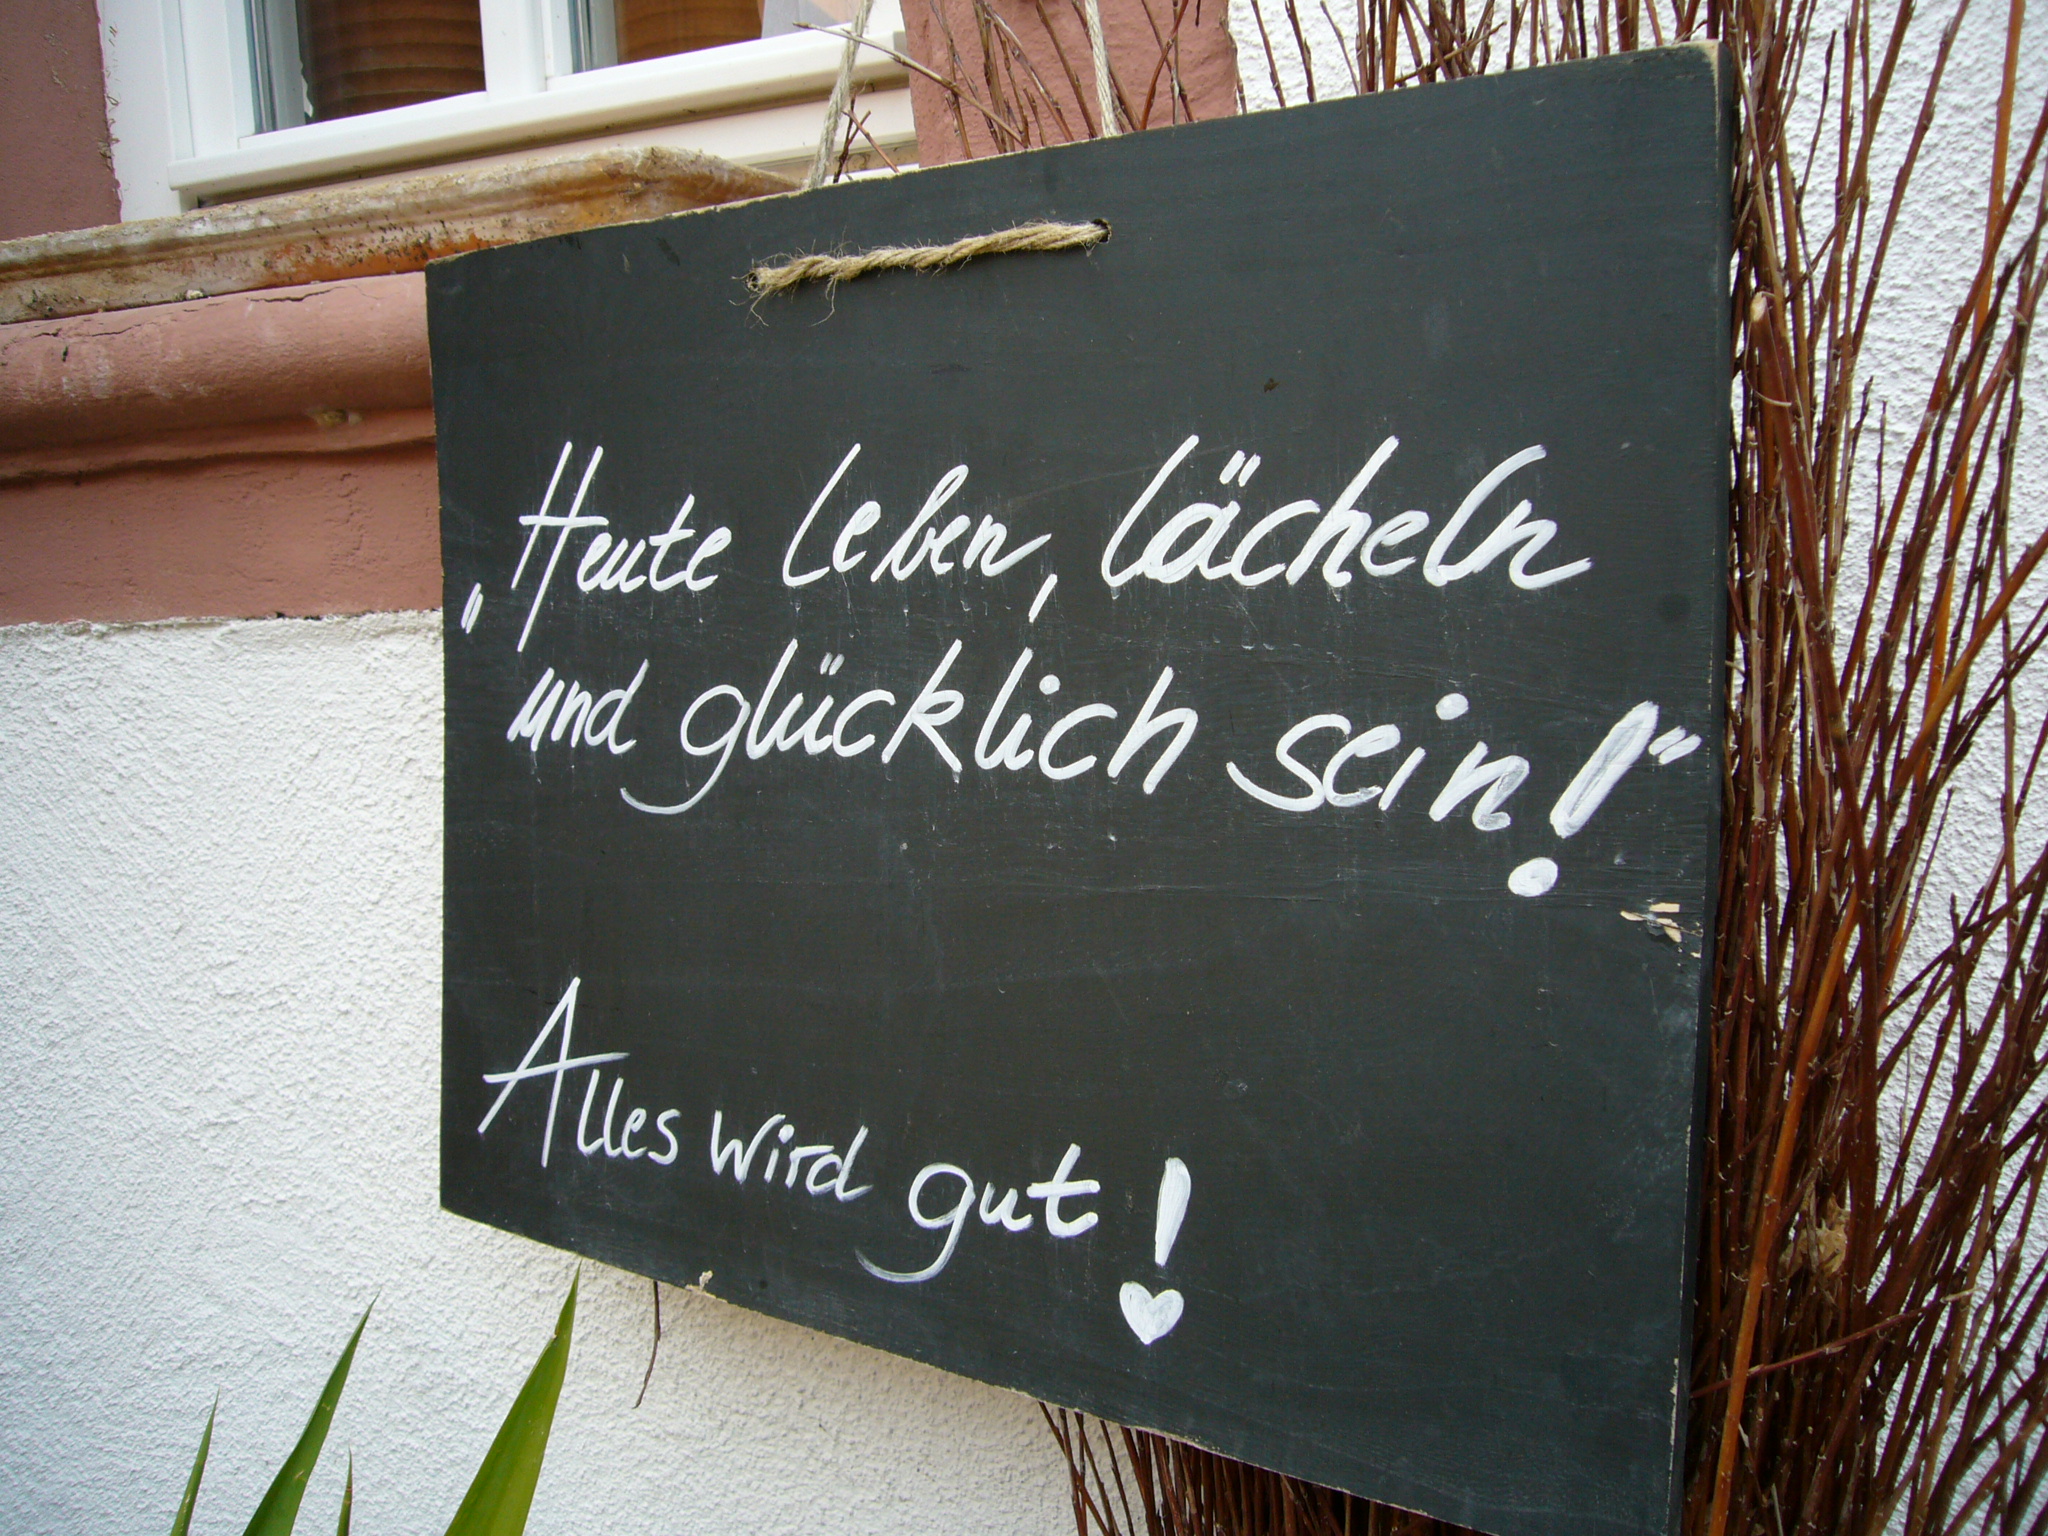 „Heute leben, lächeln
und glücklich sein!"
Alles wird gut!